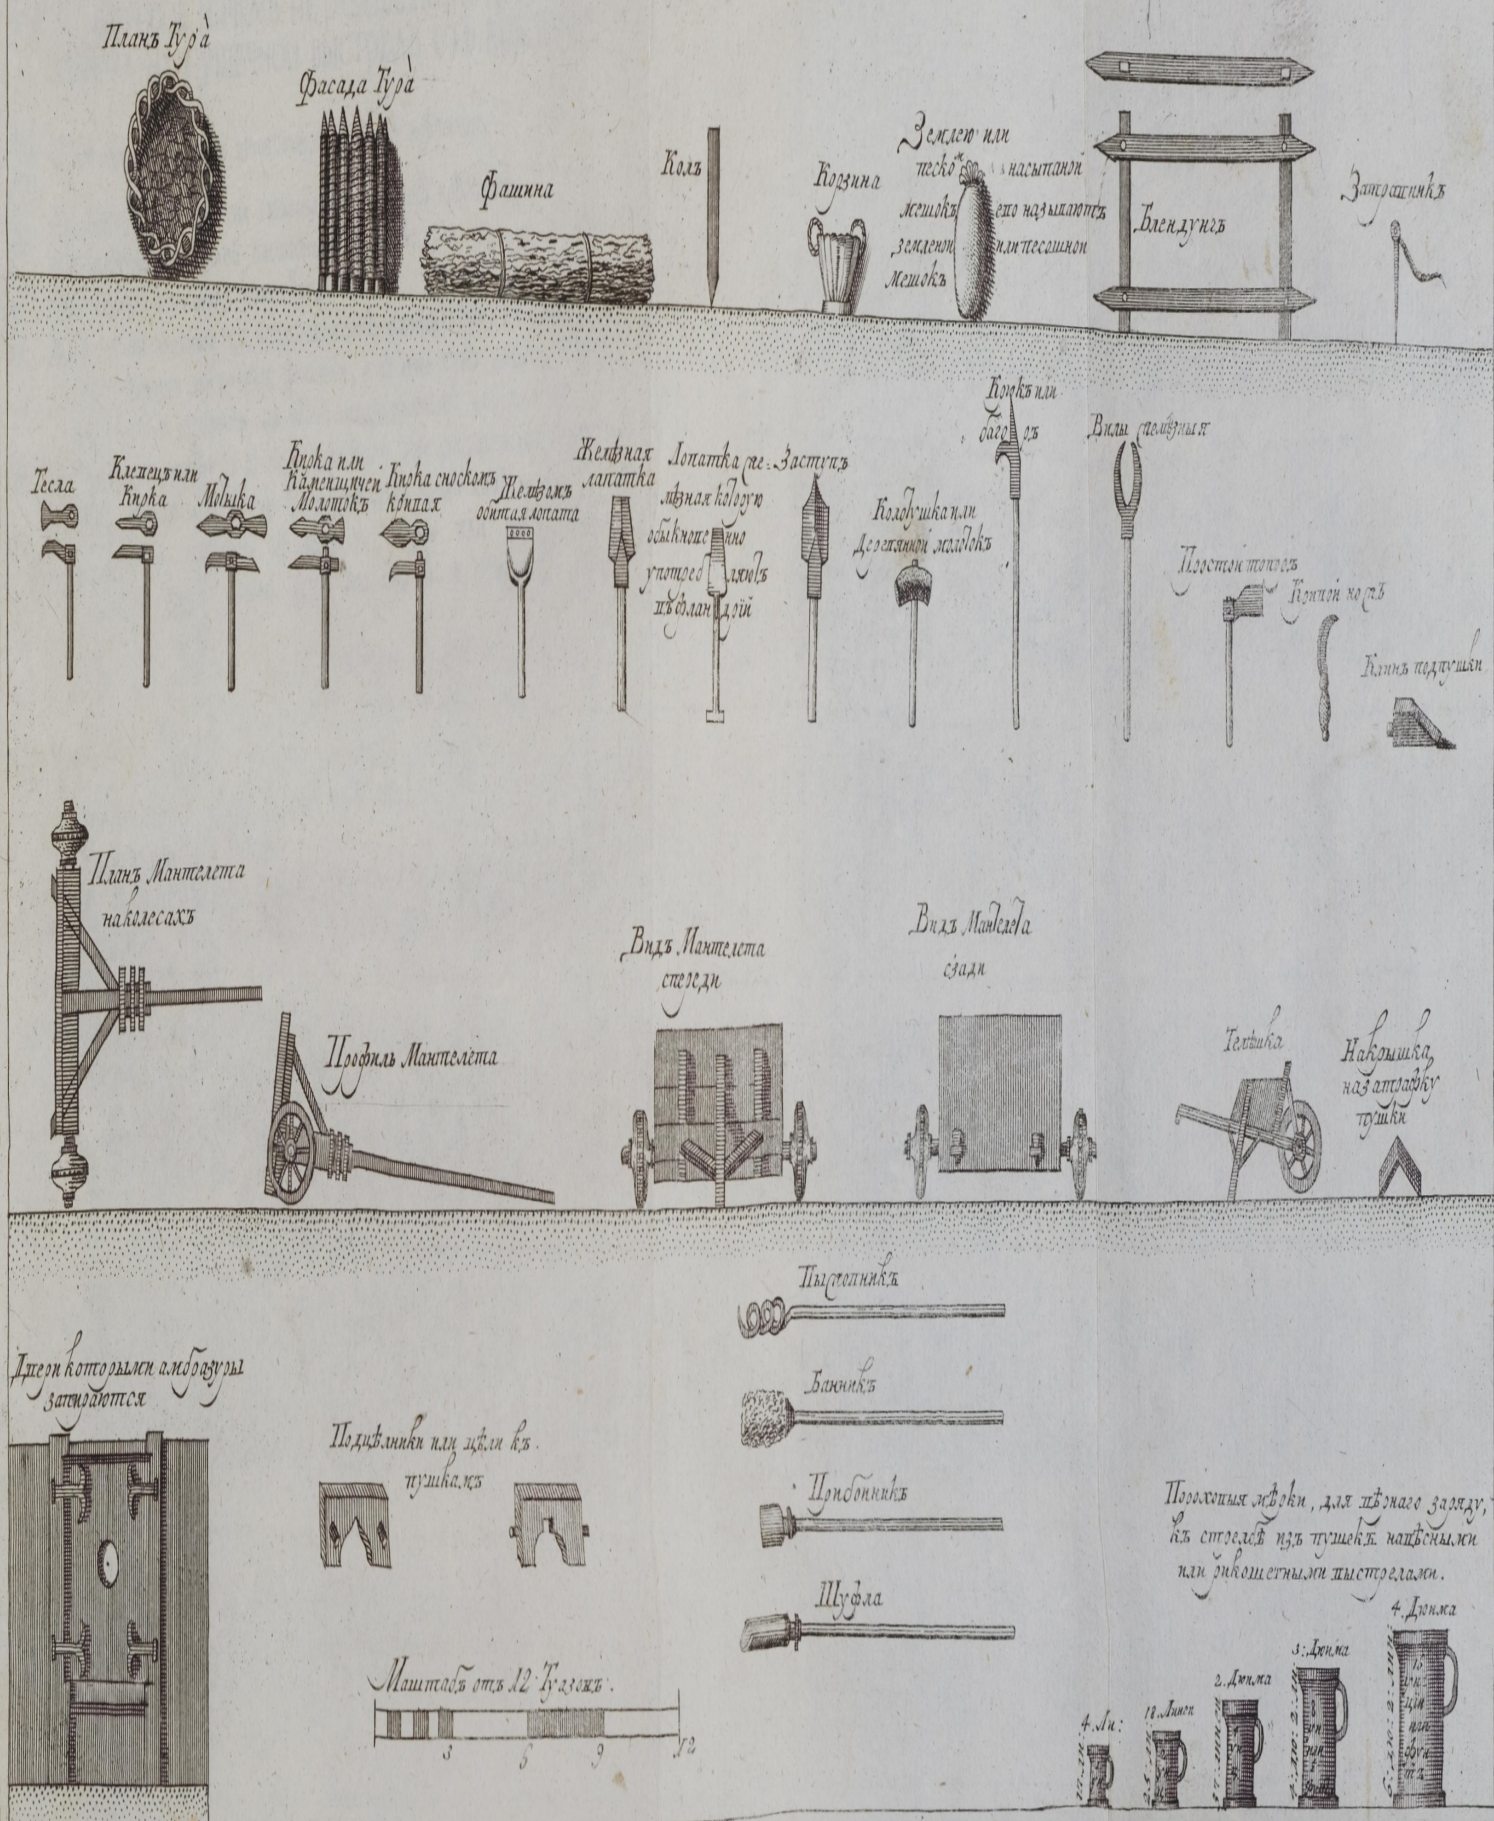 Планъ Тура̀
Фасада Тура̀
Фашина
Колъ
Корзина
Землею или
песком насыпаной
мешокъ ево называютъ
земленой или песошной
мешокъ
Блендунгъ
Затравникъ
Тесла
Клепецъ или
Кирка
Мотыка
Кирка или
Каменщичей
Молотокъ
Кирка сноскомъ
кривая
Желѣзомъ
обитая лопата
Желѣзная
лапатка
Лопатка же:
лѣзная которую
обыкновенно
употребляютъ
въ Фландрїй
Заступъ
Колотушка или
Деревянной молотокъ
Крюкъ или
багоръ
Вилы железныя
Простой топоръ
Кривой ножъ
Клинъ подпушки
Планъ Мантелета
наколесахъ
Профиль Мантелета
Видъ Мантелета
спереди
Видъ Мантелета
сзади
Телѣшка
Накрышка
назатравку
пушки
Двери которыми амбразуры
запираются
Подцѣлники или цѣли къ
пушкамъ
Маштабъ отъ 12 Туазовъ.
3 6 9 12
Пыжовникъ
Банникъ
Прибойникъ
Шуфла
Пороховыя мѣрки, для вѣрнаго заряду,
къ стрелбѣ изъ пушекъ навѣсными
или рикошетными выстрелами.
4. Ли:
18. Линеи
2. Дюйма
3: Дюйма
4. Дюйма